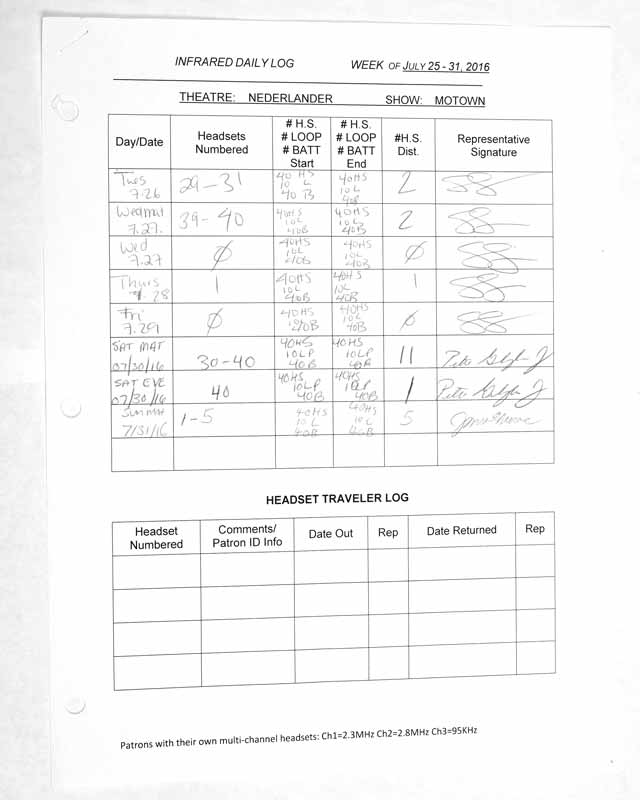 INFRARED DAILY LOG WEEK OF JULY 25 - 31, 2016
THEATRE: NEDERLANDER SHOW: MOTOWN
Day/Date Headsets Numbered # H.S. # LOOP # BATT Start # H.S. # LOOP # BATT End #H.S. Dist. Representative Signature
Tues 7.26 29-31 40 HS 10 L 40 B 40HS 10L 40B 2
Wedmat 7.27. 39-40 40HS 10L 40B 40HS 10L 40B 2
Wed 7.27 Ø 40HS 10L 40B 40HS 10L 40B Ø
Thurs 7.28 1 40HS 10L 40B 40HS 10L 40B 1
Fri 7.29 Ø 40HS 40B 40HS 10L 40B Ø
SAT MAT 07/30/16 30-40 40HS 10LP 40B 40HS 10LP 40B 11
SAT EVE 07/30/16 40 40HS 10LP 40B 40HS 10LP 40B 1
Sun Mat 7/31/16 1-5 40HS 10L 40B 40HS 10L 40B 5
HEADSET TRAVELER LOG
Headset Numbered Comments/ Patron ID Info Date Out Rep Date Returned Rep
Patrons with their own multi-channel headsets: Ch1=2.3MHz Ch2=2.8MHz Ch3=95KHz